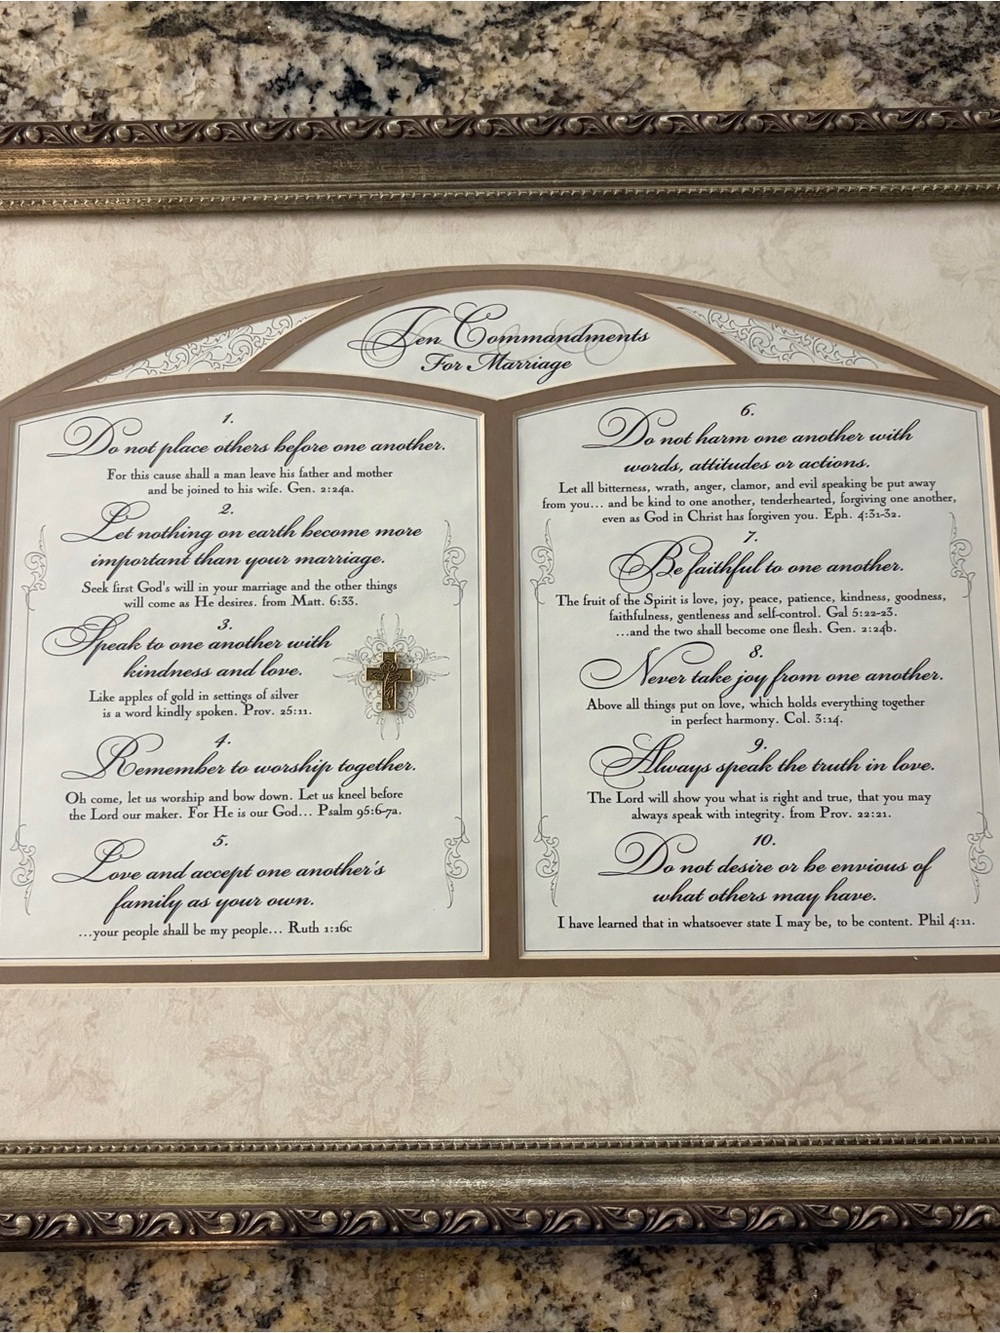 Ten Commandments
For Marriage
1.
Do not place others before one another.
For this cause shall a man leave his father and mother
and be joined to his wife. Gen. 2:24a.
2.
Let nothing on earth become more
important than your marriage.
Seek first God's will in your marriage and the other things
will come as He desires. from Matt. 6:33.
3.
Speak to one another with
kindness and love.
Like apples of gold in settings of silver
is a word kindly spoken. Prov. 25:11.
4.
Remember to worship together.
Oh come, let us worship and bow down. Let us kneel before
the Lord our maker. For He is our God... Psalm 95:6-7a.
5.
Love and accept one another's
family as your own.
...your people shall be my people... Ruth 1:16c
6.
Do not harm one another with
words, attitudes or actions.
Let all bitterness, wrath, anger, clamor, and evil speaking be put away
from you... and be kind to one another, tenderhearted, forgiving one another,
even as God in Christ has forgiven you. Eph. 4:31-32.
7.
Be faithful to one another.
The fruit of the Spirit is love, joy, peace, patience, kindness, goodness,
faithfulness, gentleness and self-control. Gal 5:22-23.
...and the two shall become one flesh. Gen. 2:24b.
8.
Never take joy from one another.
Above all things put on love, which holds everything together
in perfect harmony. Col. 3:14.
9.
Always speak the truth in love.
The Lord will show you what is right and true, that you may
always speak with integrity. from Prov. 22:21.
10.
Do not desire or be envious of
what others may have.
I have learned that in whatsoever state I may be, to be content. Phil 4:11.